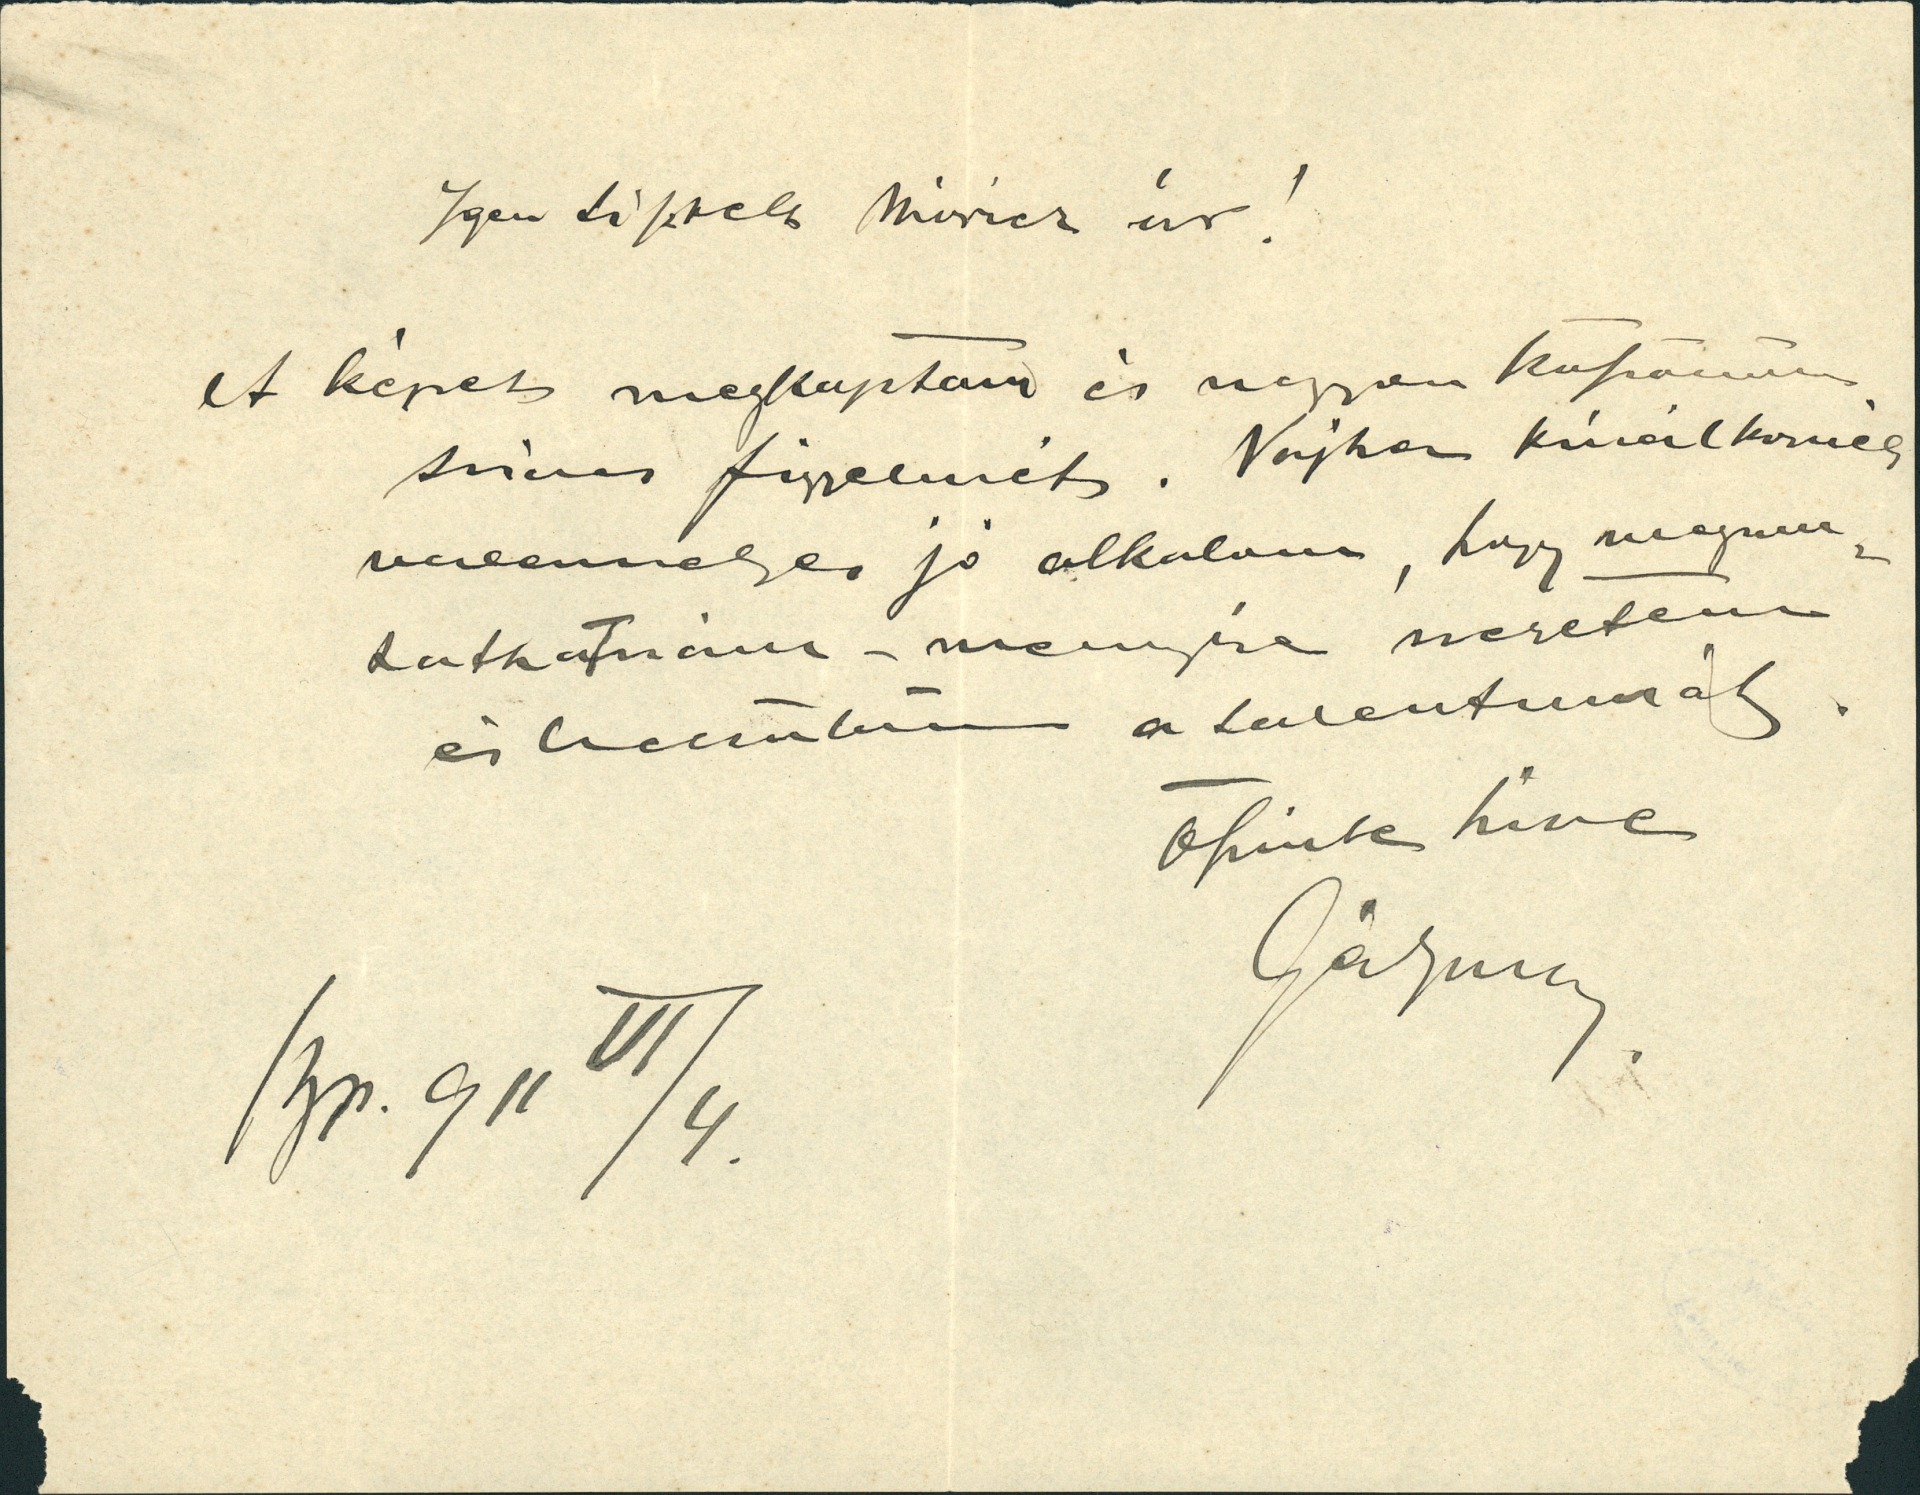 Igen tisztelt Móricz úr!
A képet megkaptam és nagyon köszönöm
szíves figyelmét. Vajha kínálkoznék
valamelyes jó alkalom, hogy megmu-
tathatnám – mennyire szeretem
és becsülöm a talentumát.
Őszinte híve
Bp. 911 VI/4.